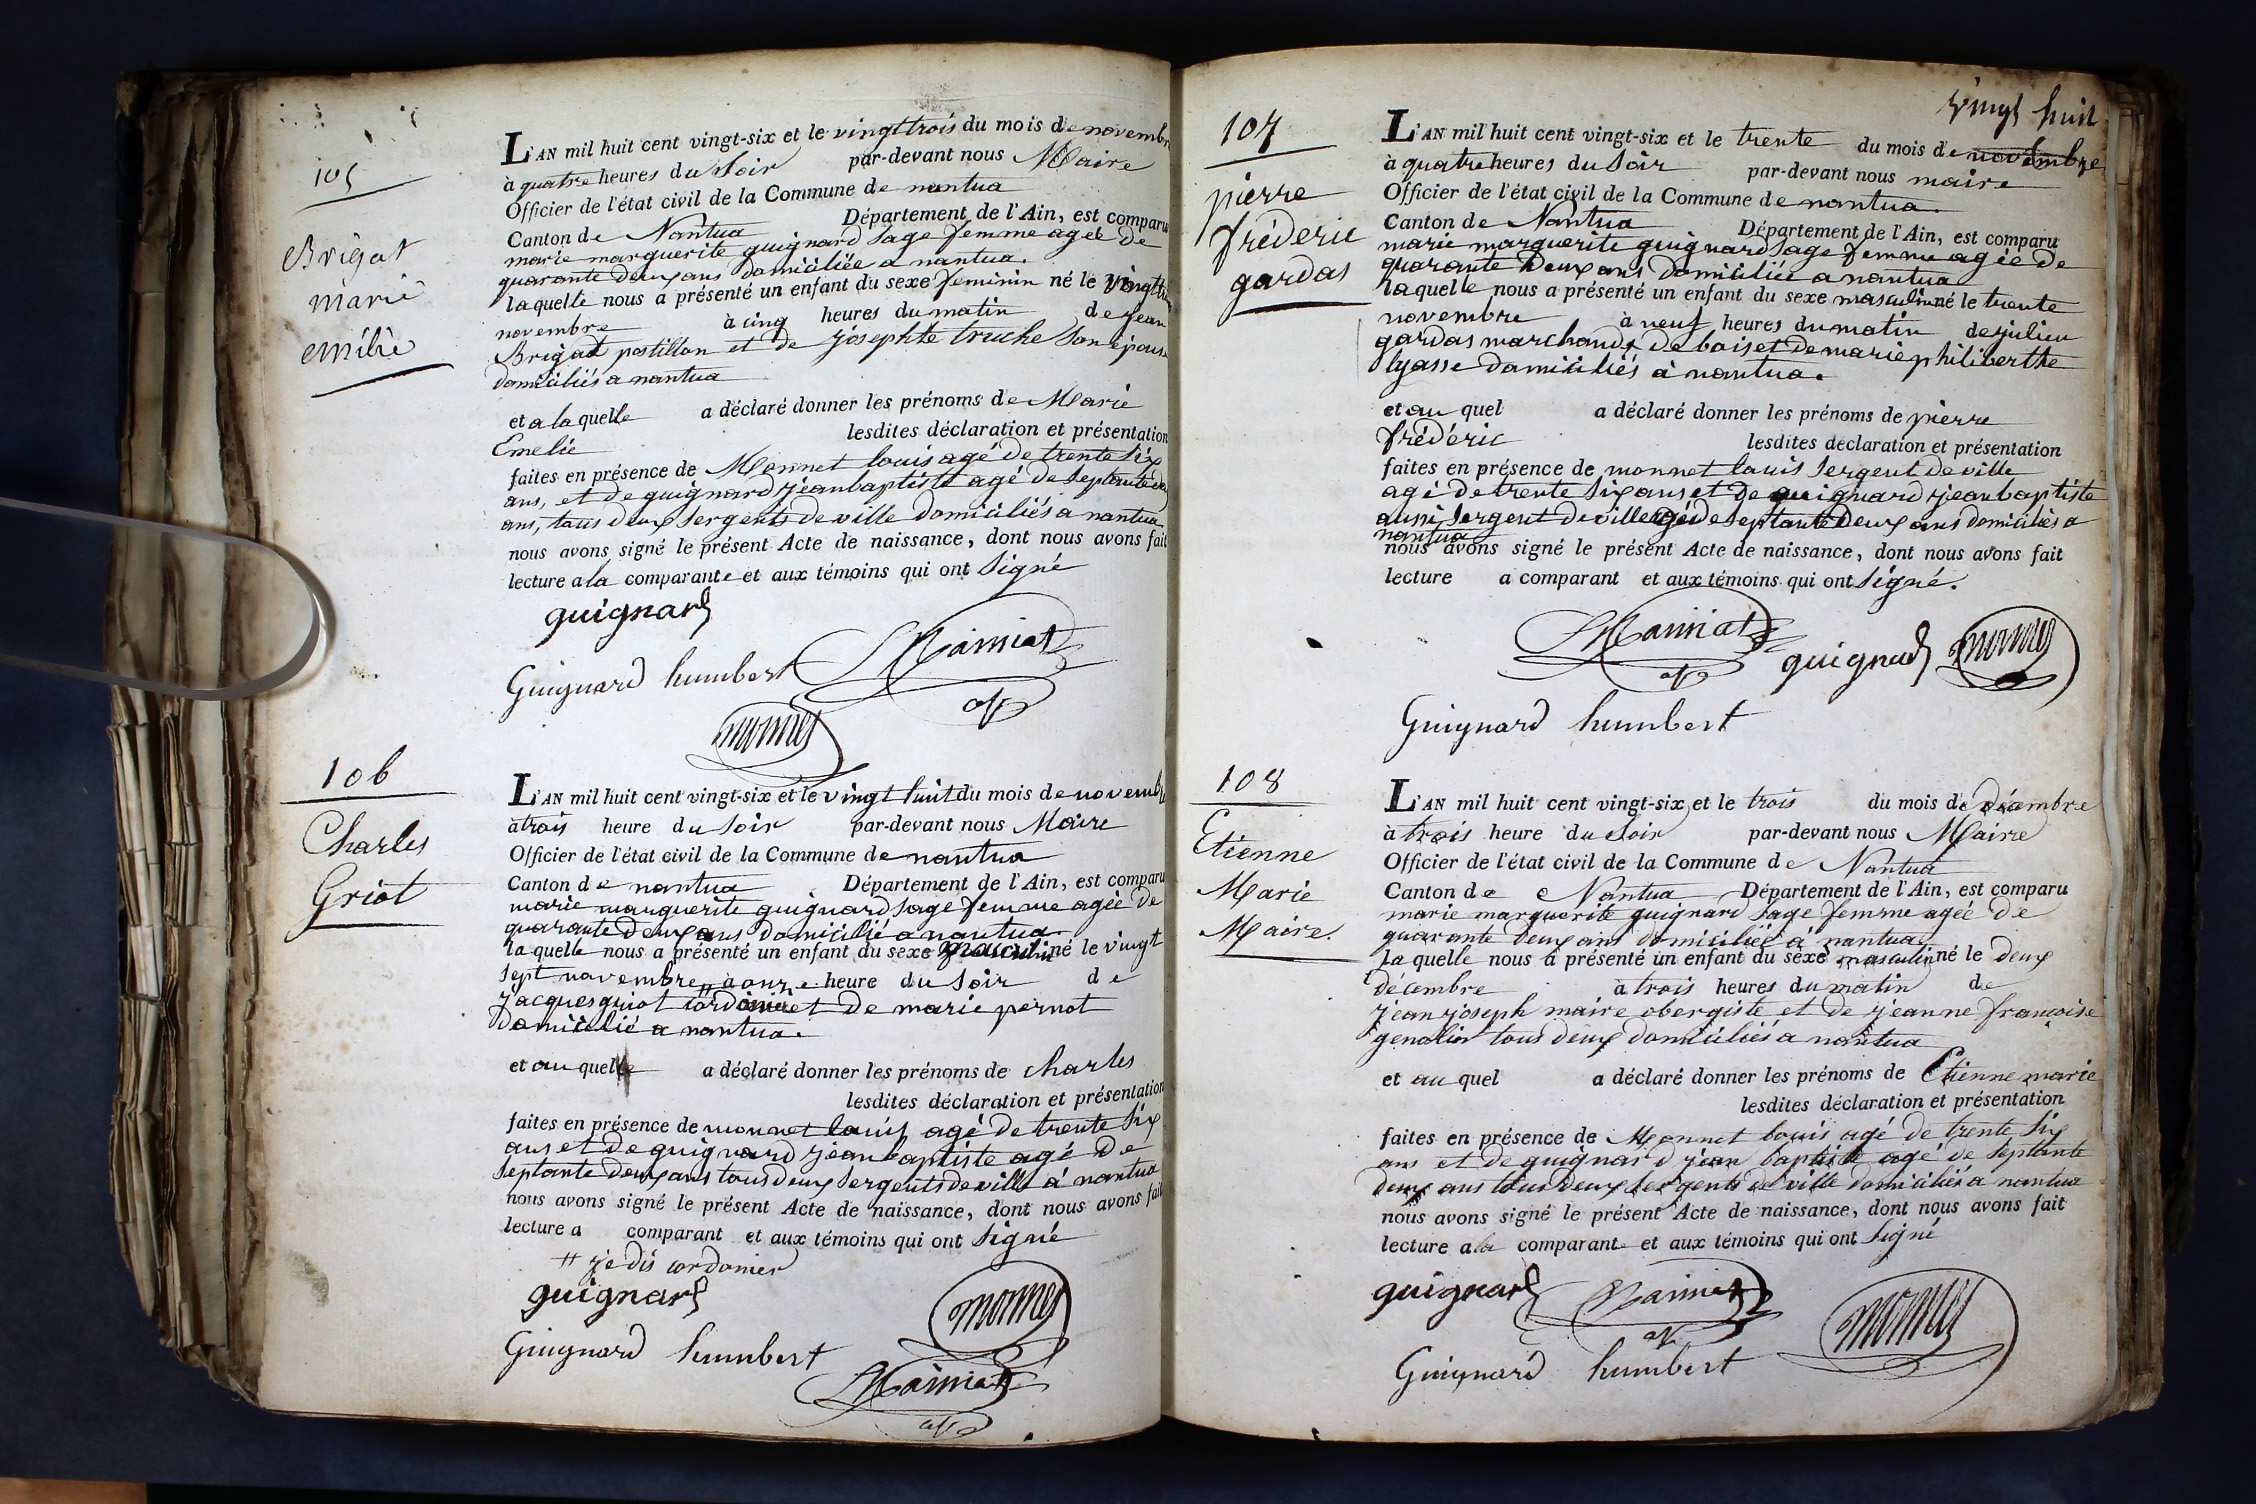 105
Brigat
marie
emélie
L'AN mil huit cent vingt-six et le vingt trois du mois de novembre
à quatre heures du soir par-devant nous Maire
Officier de l'état civil de la Commune de nantua
Canton de Nantua Département de l'Ain, est comparu
marie marguerite guignard sage femme agée de
quarante deux ans domiciliée a nantua.
laquelle nous a présenté un enfant du sexe feminin né le vingt
novembre à cinq heures du matin de jean
Brigat postillon et de josephte truche son epouse
domiciliés a nantua
et a la quelle a déclaré donner les prénoms de Marie
Emelie lesdites déclaration et présentation
faites en présence de Monnet louis agé de trente six
ans, et de guignard jean baptiste agé de septante
ans, tous deux sergents de ville domiciliés a nantua
nous avons signé le présent Acte de naissance, dont nous avons fait
lecture a la comparante et aux témoins qui ont signé
guignard
Guignard humbert
monnet
106
Charles
Griot
L'AN mil huit cent vingt-six et le vingt huit du mois de novembre
à trois heure du soir par-devant nous Maire
Officier de l'état civil de la Commune de nantua
Canton de nantua Département de l'Ain, est comparu
marie marguerite guignard sage femme agée de
quarante deux ans domicilié a nantua
la quelle nous a présenté un enfant du sexe masculin né le vingt
sept novembre à onze heure du soir de
jacques griot cordonier et de marie pernot
domicilié a nantua.
et au quelle a déclaré donner les prénoms de charles
lesdites déclaration et présentation
faites en présence de monnet louis agé de trente six
ans et de guignard jean baptiste agé de
septante deux ans tous deux sergents de ville à nantua
nous avons signé le présent Acte de naissance, dont nous avons fait
lecture a comparant et aux témoins qui ont signé
# je dis cordonier
guignard
monnet
Guignard humbert
vingt huit
107
pierre
fréderic
gardas
L'AN mil huit cent vingt-six et le trente du mois de novembre
à quatre heures du soir par-devant nous maire
Officier de l'état civil de la Commune de nantua
Canton de Nantua Département de l'Ain, est comparu
marie marguerite guignard sage femme agée de
quarante deux ans domiciliée a nantua
laquelle nous a présenté un enfant du sexe masculin né le trente
novembre à neuf heures du matin de julien
gardas marchand de bois et de marie philiberthe
lyasse domiciliés à nantua.
et au quel a déclaré donner les prénoms de pierre
fréderic lesdites déclaration et présentation
faites en présence de monnet louis sergent de ville
agé de trente six ans et de guignard jean baptiste
aussi sergent de ville agé de septante deux ans domiciliés a
nantua
nous avons signé le présent Acte de naissance, dont nous avons fait
lecture a comparant et aux témoins qui ont signé.
guignard
monnet
Guignard humbert
108
Etienne
Marie
Maire.
L'AN mil huit cent vingt-six et le trois du mois de décembre
à trois heure du soir par-devant nous Maire
Officier de l'état civil de la Commune de Nantua
Canton de Nantua Département de l'Ain, est comparu
marie marguerite guignard sage femme agée de
quarante deux ans domiciliée à nantua
la quelle nous a présenté un enfant du sexe masculin né le deux
décembre à trois heures du matin de
jean joseph maire obergiste et de jeanne françoise
genolin tous deux domiciliés a nantua
et au quel a déclaré donner les prénoms de Etienne marie
lesdites déclaration et présentation
faites en présence de Monnet louis agé de trente six
ans et de guignard jean baptiste agé de septante
deux ans tous deux sergents de ville domiciliés a nantua
nous avons signé le présent Acte de naissance, dont nous avons fait
lecture a la comparante et aux témoins qui ont signé
guignard
monnet
Guignard humbert